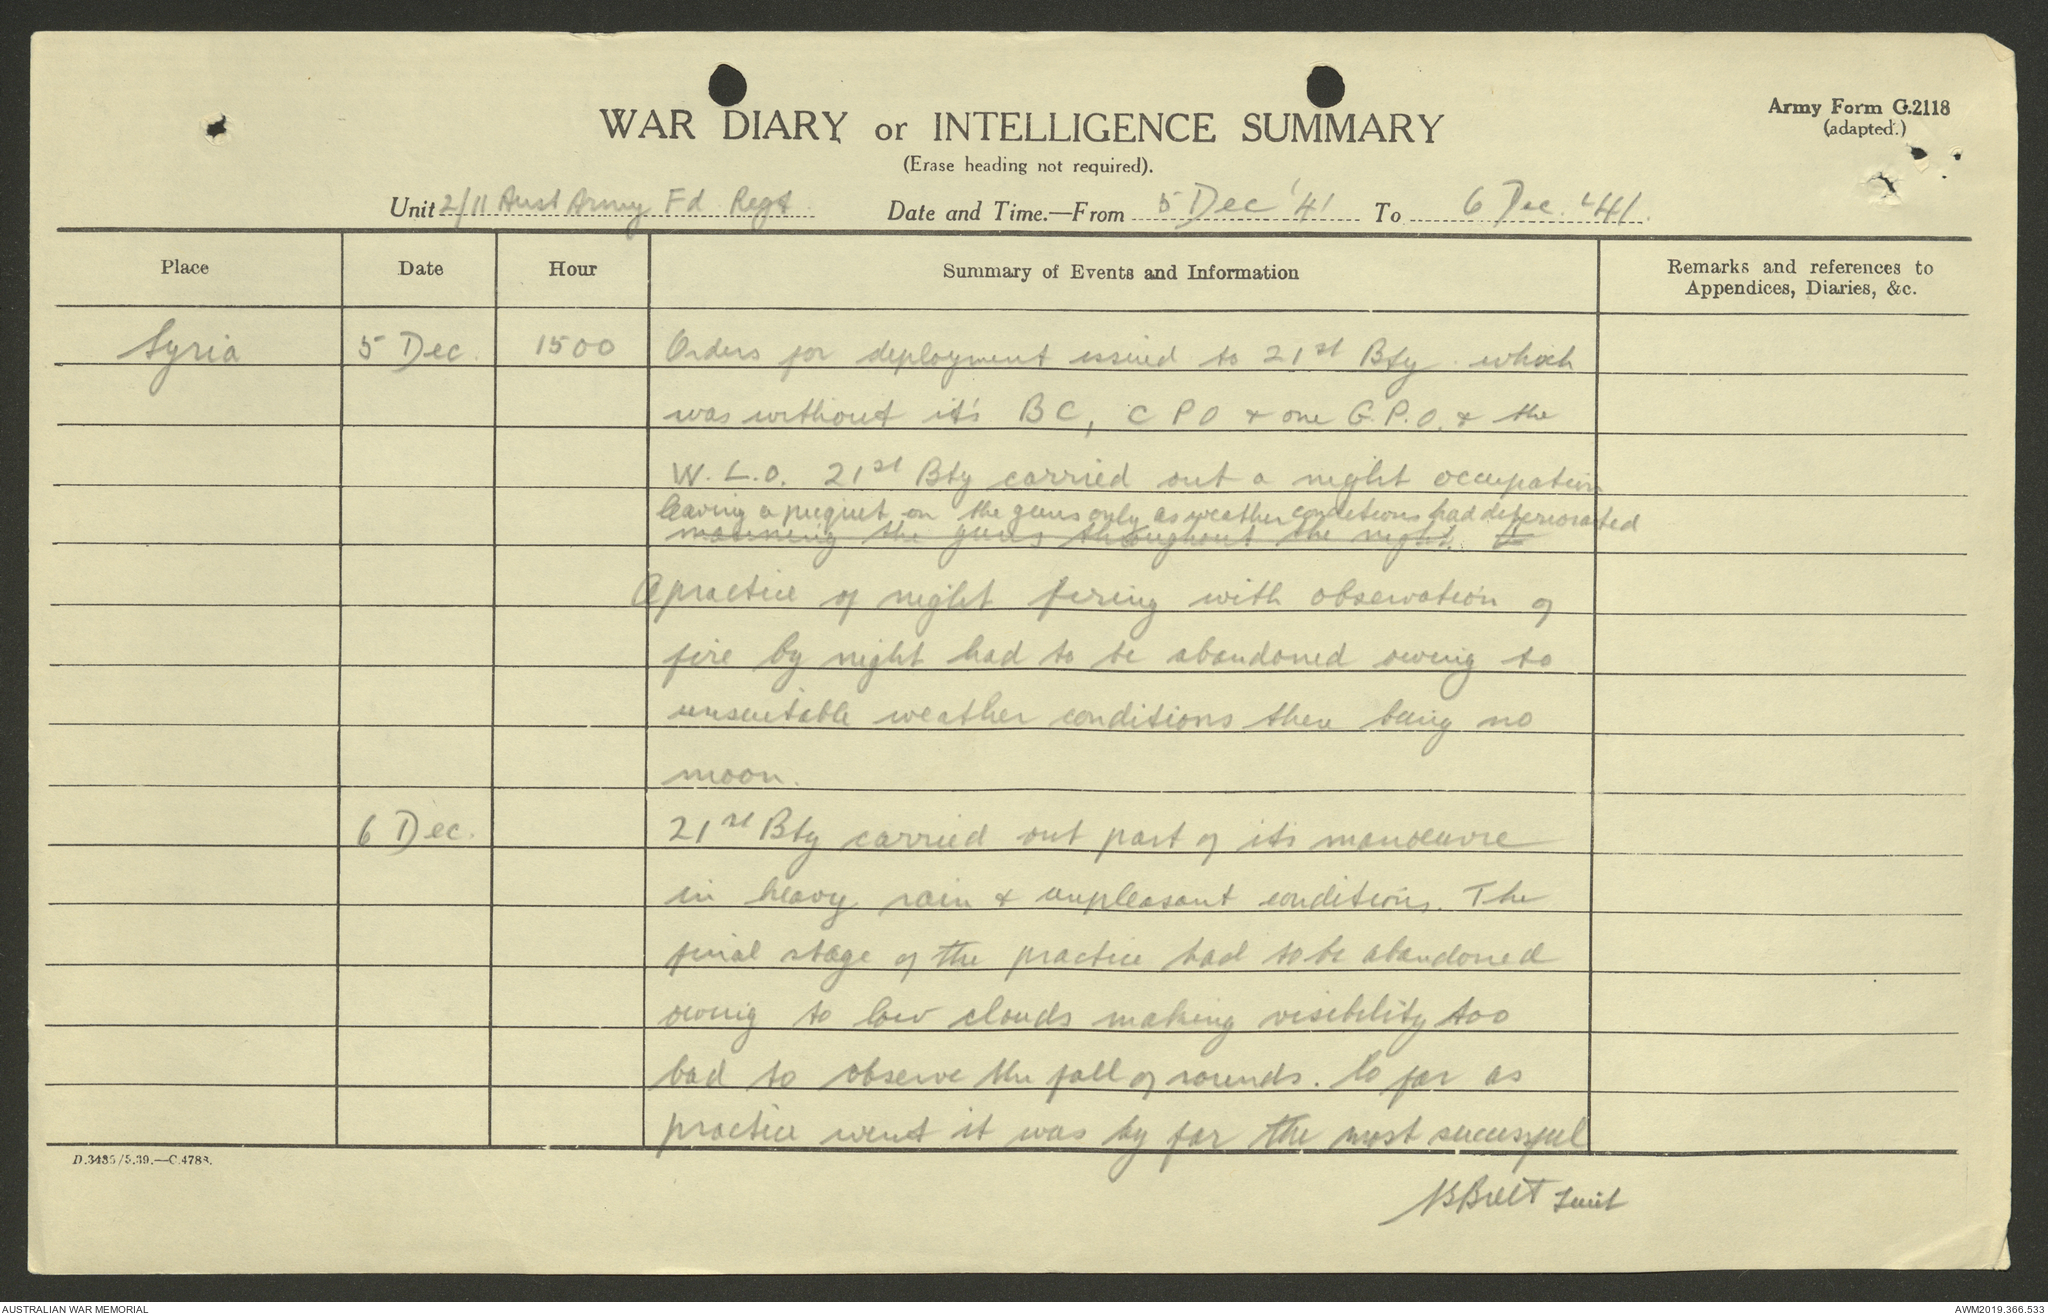 Army Form G.2118
(adapted.)
WAR DIARY or INTELLIGENCE SUMMARY
(Erase heading not required).
Unit 2/11 Aust Army Fd Regt Date and Time.—From 5 Dec '41 To 6 Dec. '41.
Place Date Hour Summary of Events and Information Remarks and references to
Appendices, Diaries, &c.
Syria 5 Dec. 1500 Orders for deployment issued to 21st Bty which
was without it's BC, C P O & one G.P.O. & the
W.L.O. 21st Bty carried out a night occupation
leaving a piequet on the guns only as weather conditions had deteriorated
manning the guns throughout the night.
A practice of night firing with observation of
fire by night had to be abandoned owing to
unsuitable weather conditions there being no
moon.
6 Dec. 21st Bty carried out part of its manoeuvre
in heavy rain & unpleasant conditions. The
final stage of the practice had to be abandoned
owing to low clouds making visibility too
bad to observe the fall of rounds. So far as
practice went it was by far the most successful
D.3485/5.39.—C.4788.
Lieut
AUSTRALIAN WAR MEMORIAL AWM2019.366.533